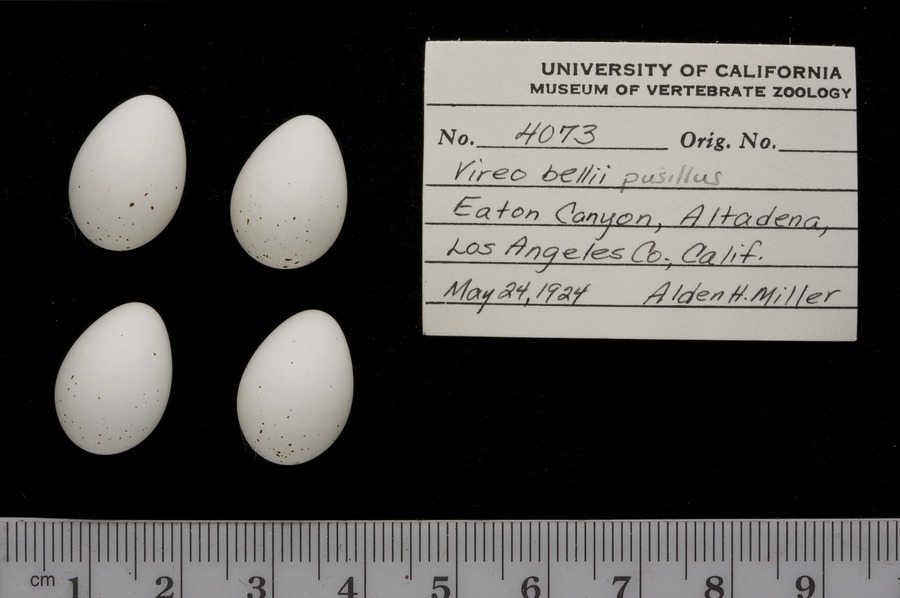 UNIVERSITY OF CALIFORNIA
MUSEUM OF VERTEBRATE ZOOLOGY
No. 4073 Orig. No.
Vireo bellii pusillus
Eaton Canyon, Altadena,
Los Angeles Co., Calif.
May 24, 1924 Alden H. Miller
cm 1 2 3 4 5 6 7 8 9